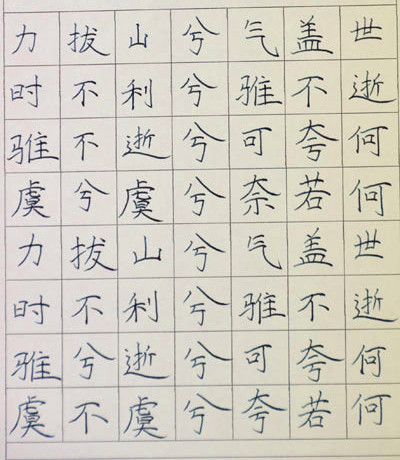 力拔山兮气盖世
时不利兮骓不逝
骓不逝兮可夸何
虞兮虞兮奈若何
力拔山兮气盖世
时不利兮骓不逝
骓兮逝兮可夸何
虞不虞兮夸若何